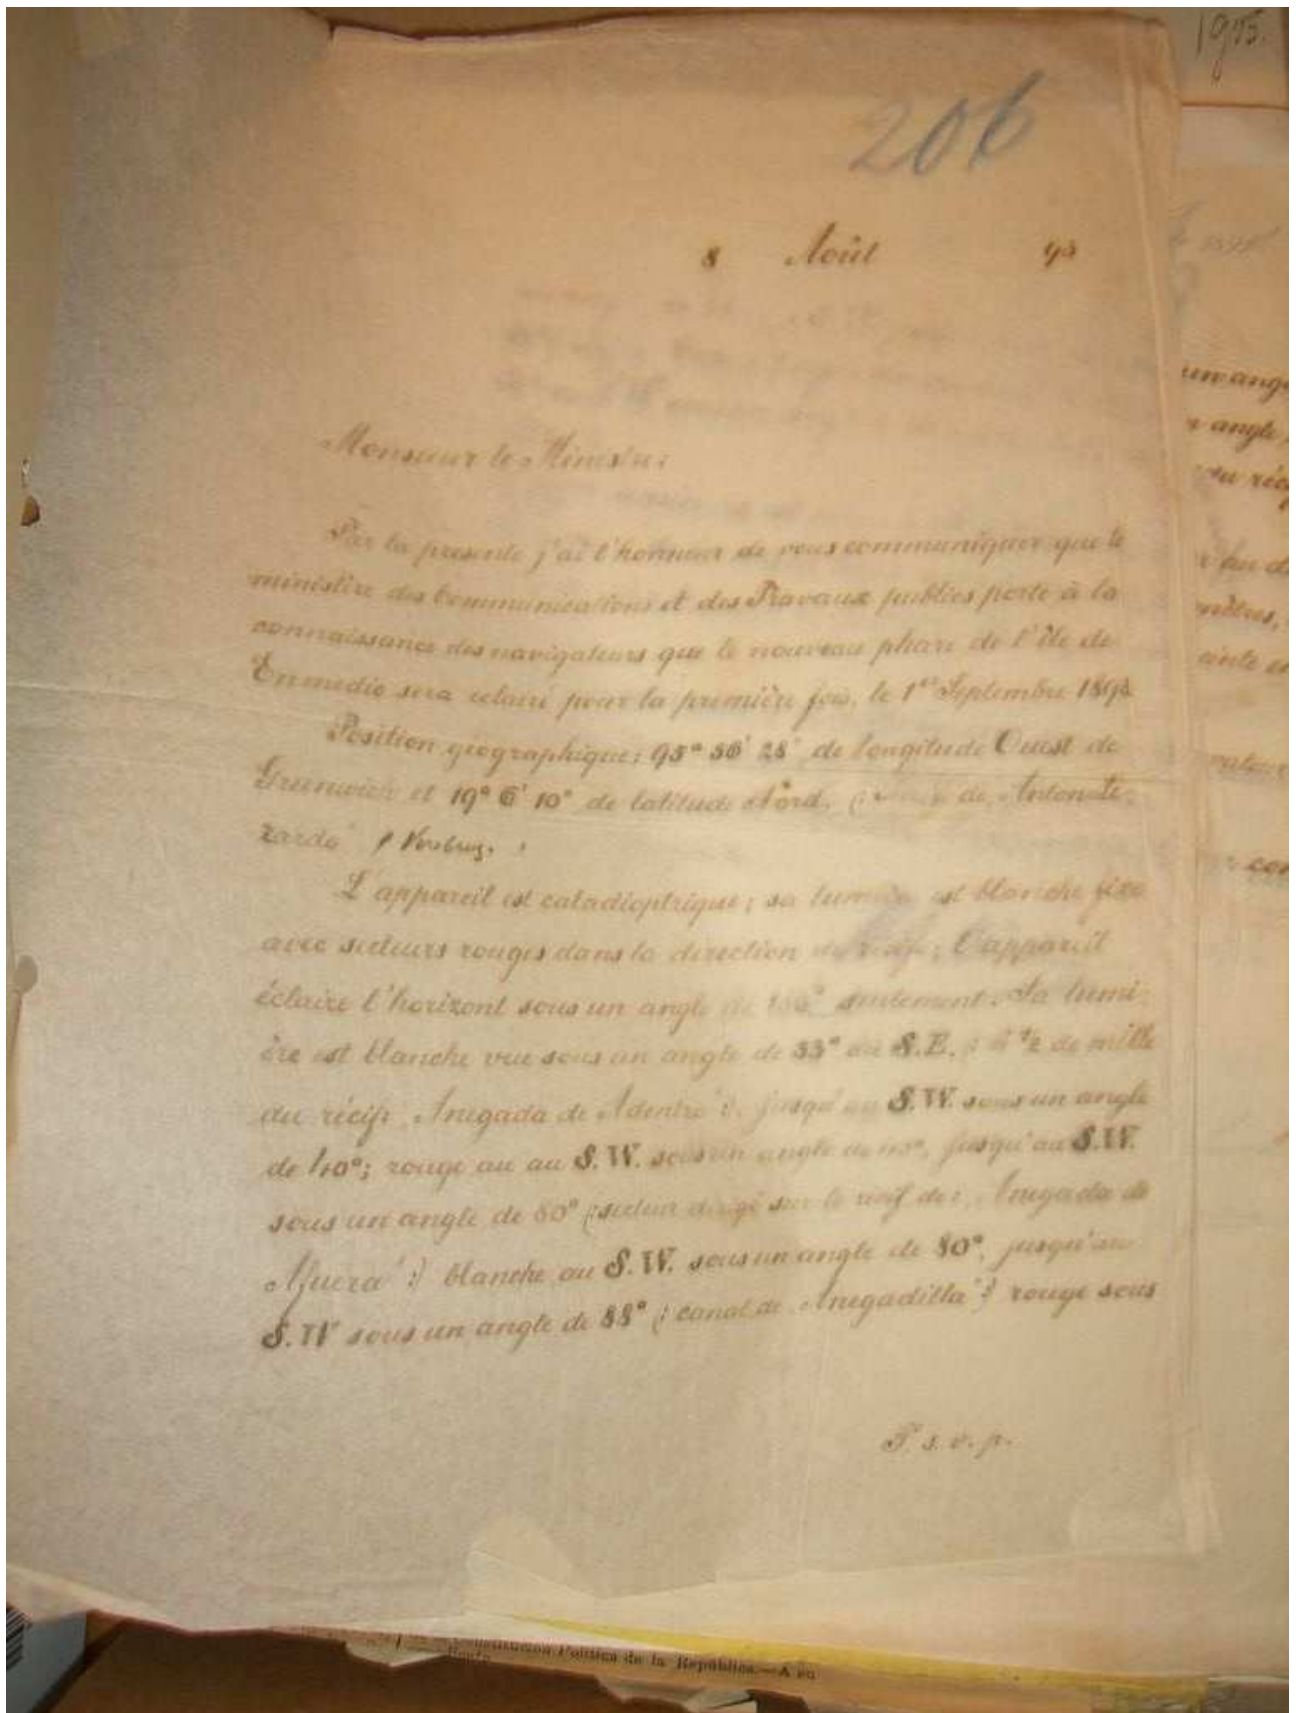 1905.
206
8 Août 93
Monsieur le Ministre:
Par la presente j'ai l'honneur de vous communiquer que le
ministère des Communications et des Travaux publics porte à la
connaissance des navigateurs que le nouveau phare de l'Île de
Enmedio sera éclairé pour la première fois, le 1er Septembre 189
Position géographique: 95° 56' 28" de longitude Ouest de
Greenwich et 19° 6' 10" de latitude Nord, de Anton Li-
zardo" Veracruz.
L'appareil est catadioptrique; sa lumière est blanche fixe
avec secteurs rouges dans la direction du récif; l'appareil
éclaire l'horizont sous un angle de seulement. Sa lumi-
ère est blanche vue sous un angle de 33° au S.E. 1/2 de mille
du récif Anegada de Adentro jusqu'au S.W. sous un angle
de 40°; rouge au au S.W. sous un angle de jusqu'au S.W.
sous un angle de 60° (:secteur dirigé sur le récif de Anegada de
Afuera":) blanche au S.W. sous un angle de 80°, jusqu'au
S.W sous un angle de 88° (:canal de Anegadilla":) rouge sous
P. s. v. p.
un ang
angle
du réc
au d
mètres,
einte en
con
Constitucion Política de la República.—A su